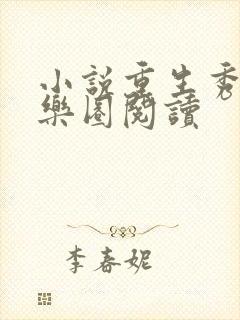 小說重生秀
樂園閱讀
李春妮